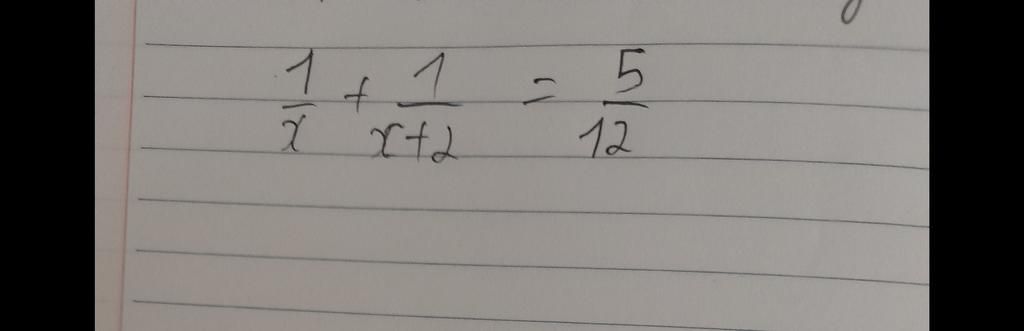 1/x + 1/(x+2) = 5/12